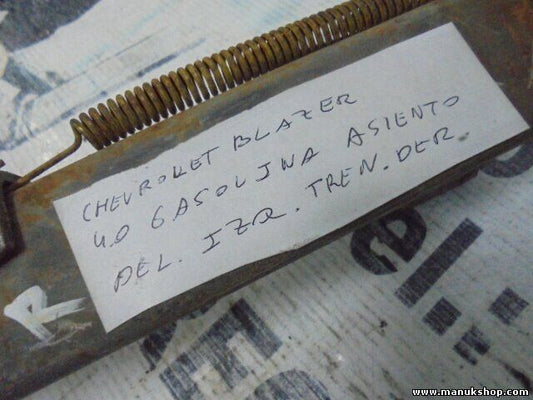 CHEVROLET BLAZER
4.0 GASOLINA ASIENTO
DEL. IZR. TREN. DER.
R
www.manukshop.com